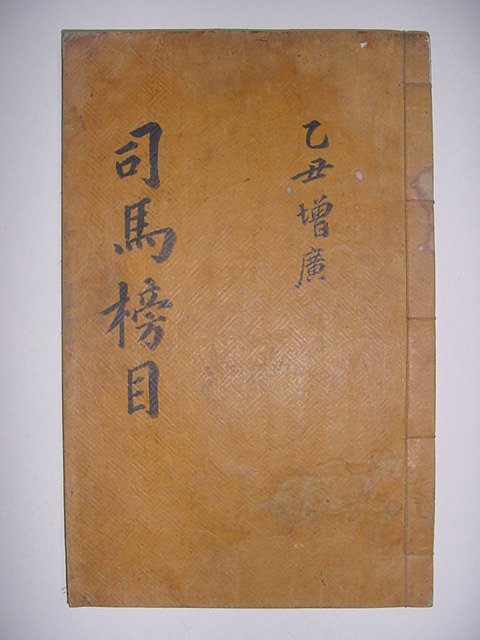 乙丑增廣
司馬榜目